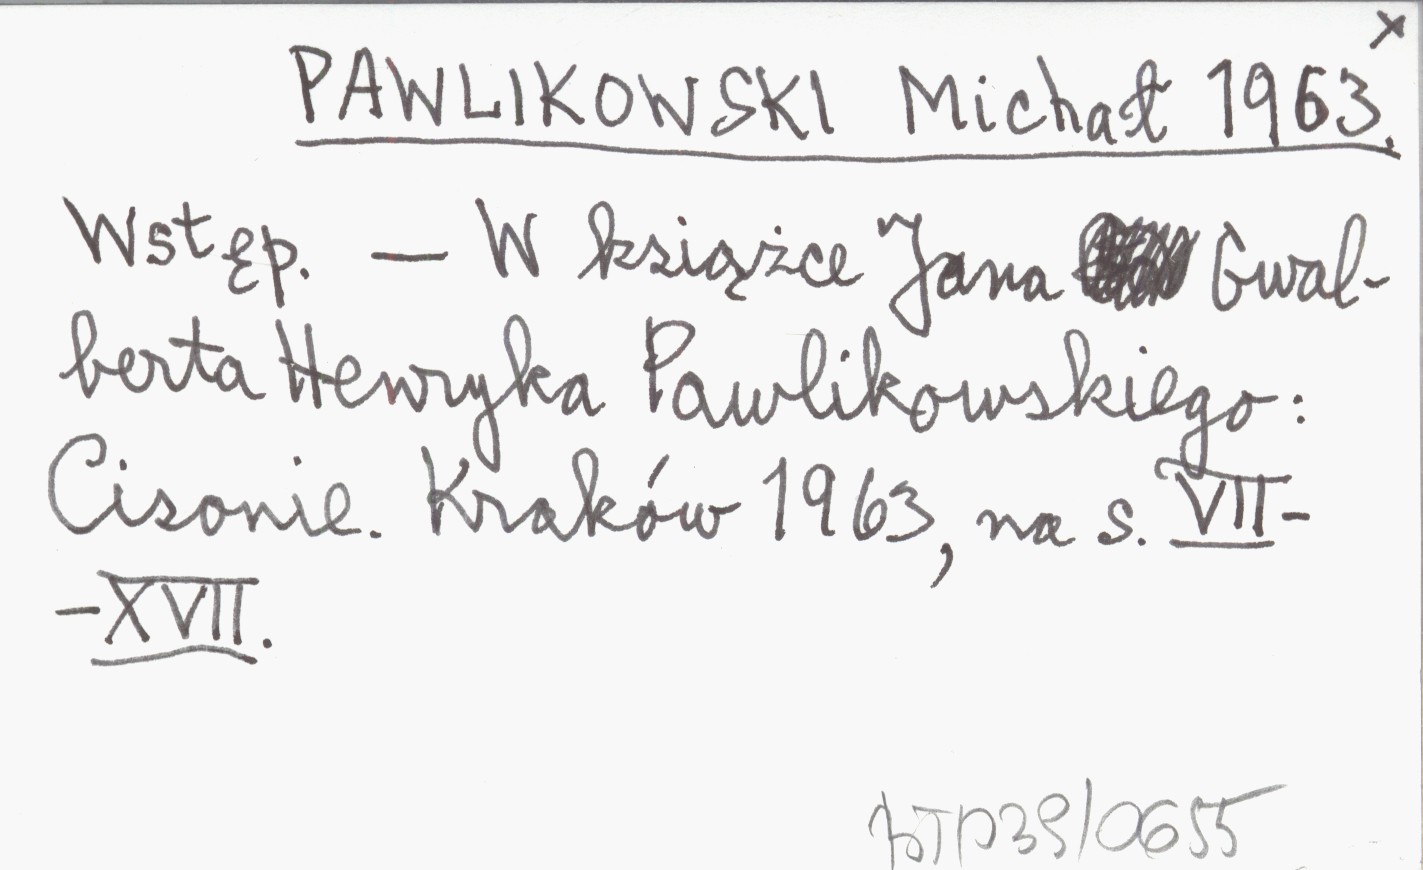 x
PAWLIKOWSKI Michał 1963.
Wstęp. — W książce Jana Gwal-
berta Henryka Pawlikowskiego:
Cisonie. Kraków 1963, na s. VII-
-XVII.